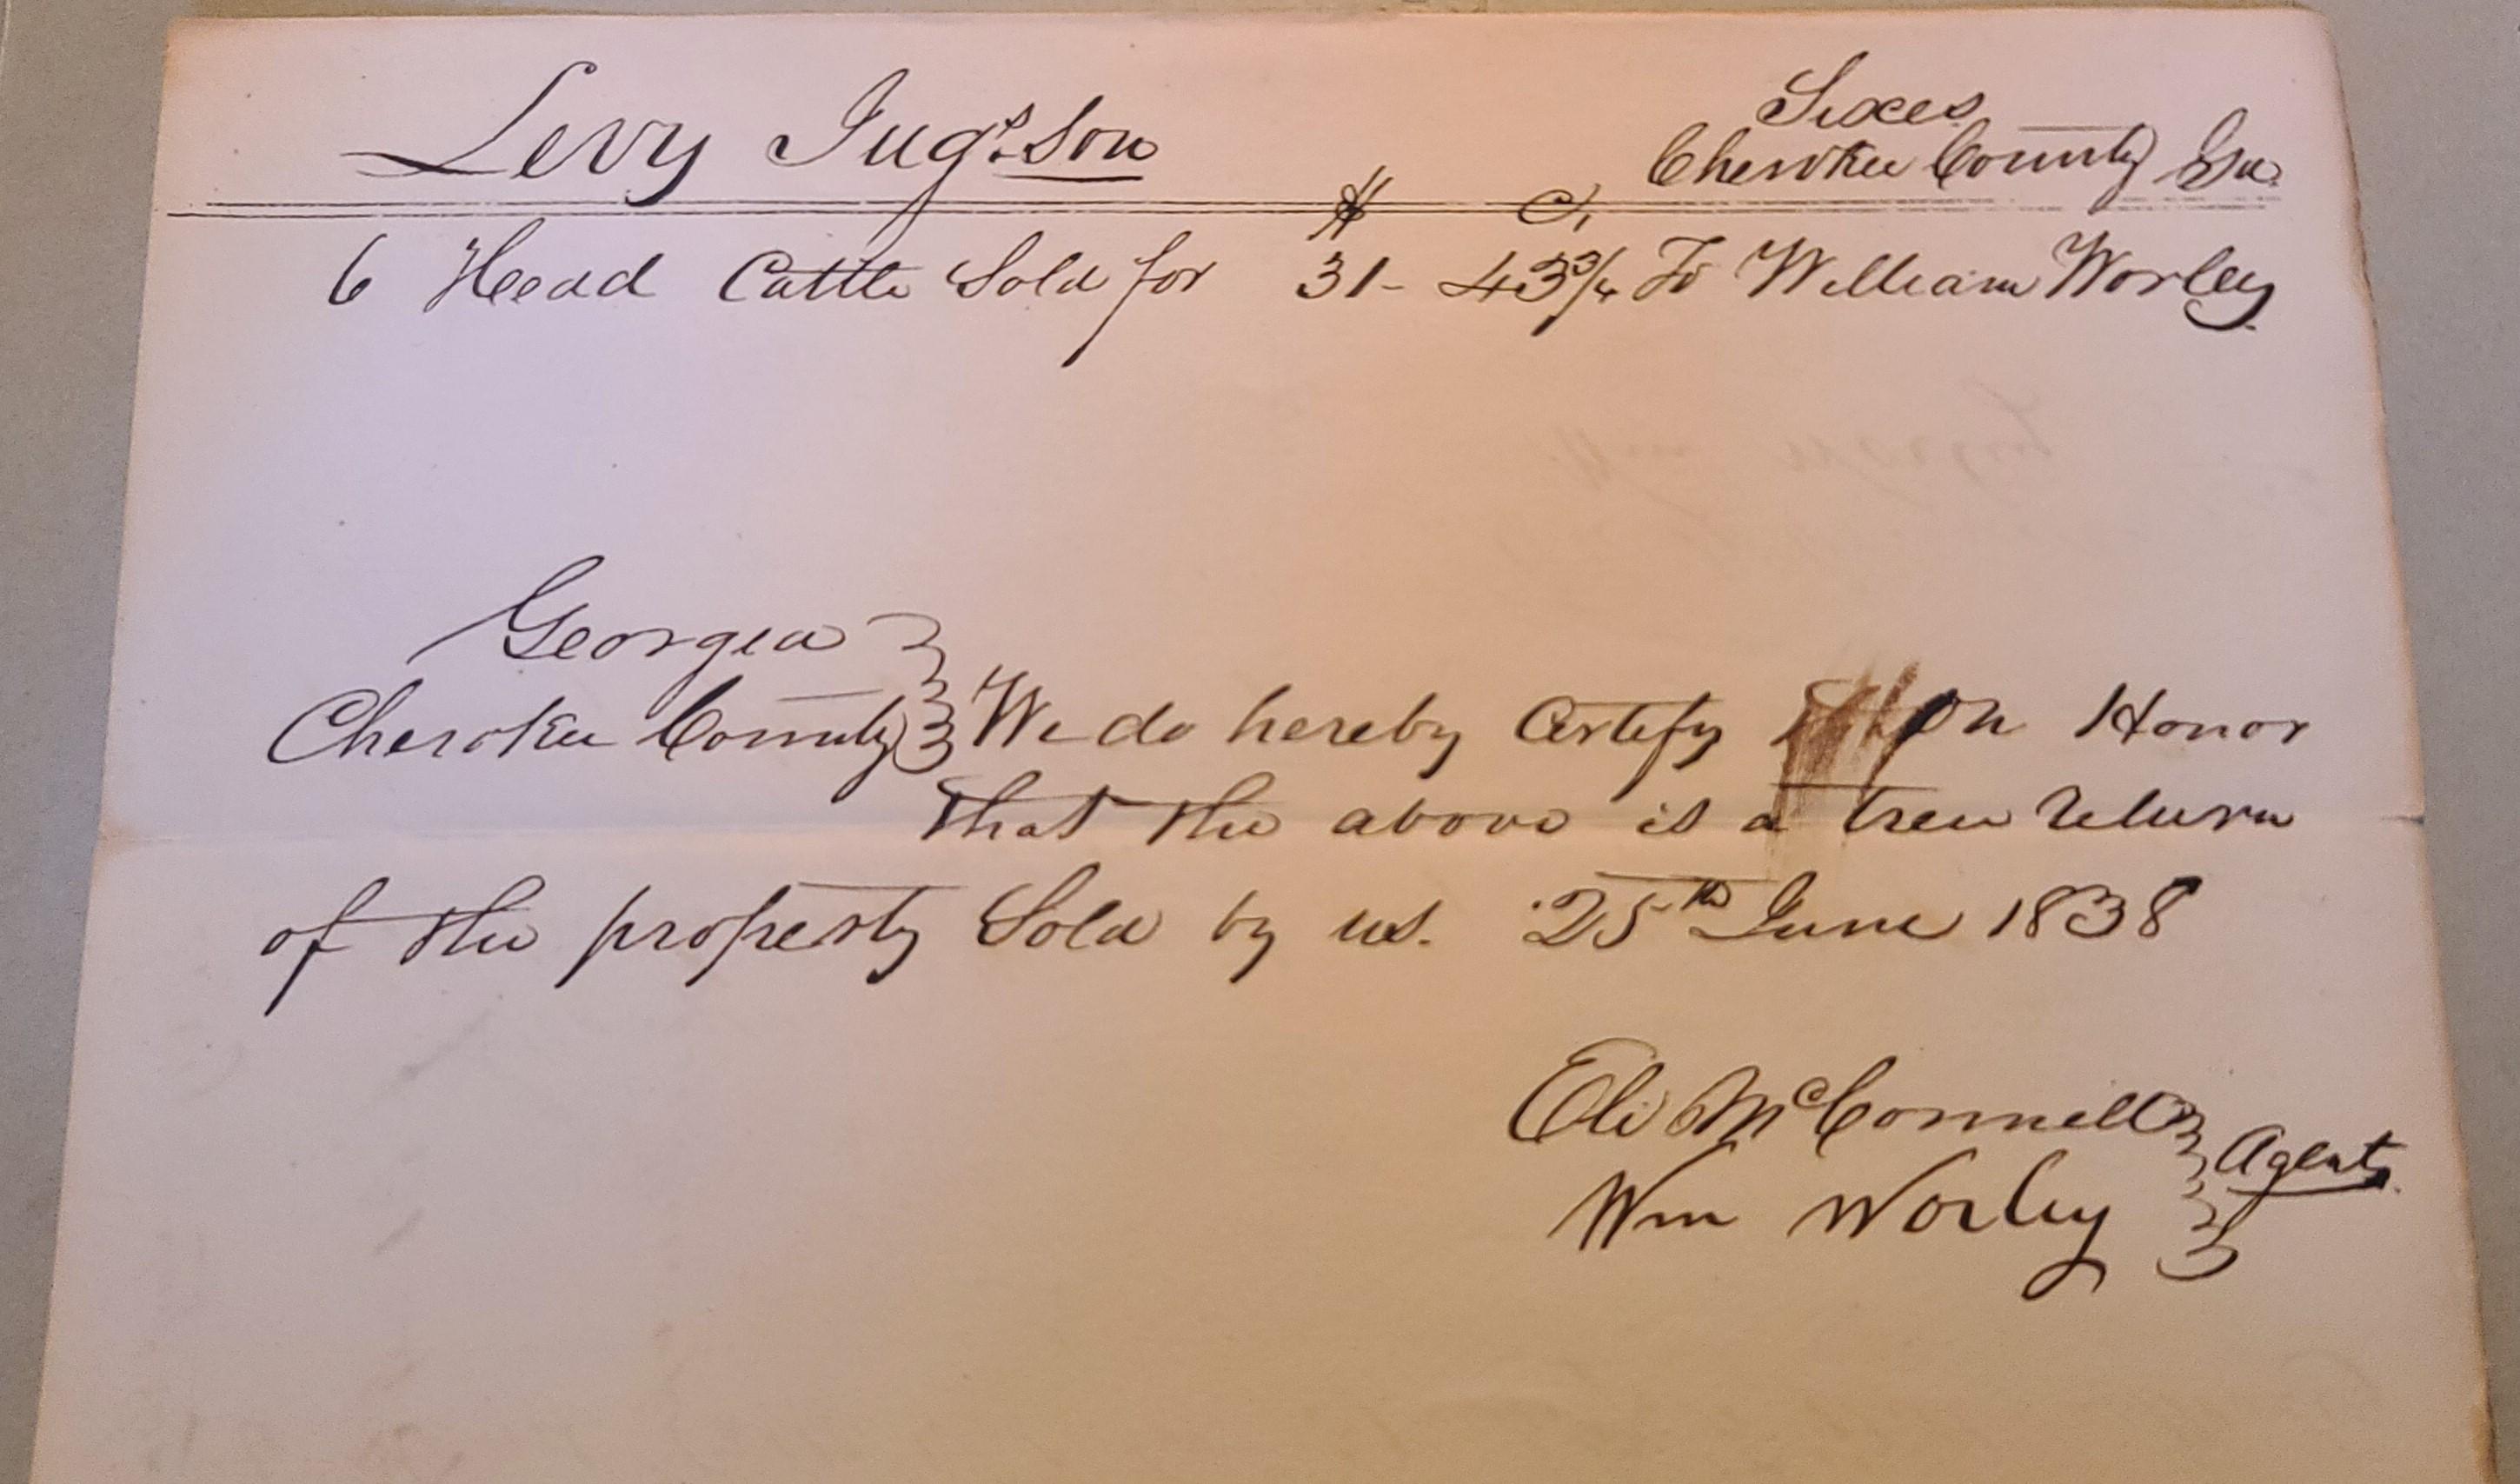 Levy Jug's. Son
Sixes
Cherokee County Ga.
$ C,
6 Head Cattle Sold for 31- 43¾ To William Worley
Georgia
Cherokee County We do hereby Certify on Honor
that the above is a treu return
of the property Sold by us. 25th June 1838
Eli McConnell
Agents
Wm Worley